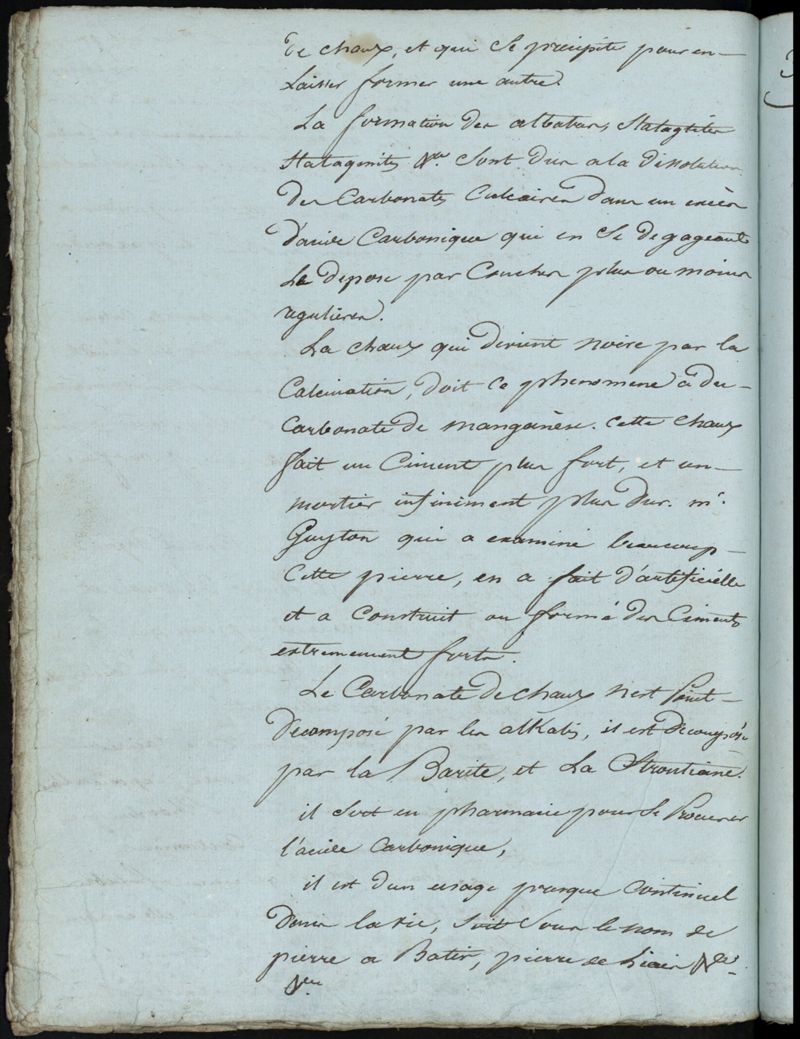 de chaux, et qui se precipite pour en
laisser former une autre.
La formation des albatres, Stalagtites
Stalagmites &ca. sont dus a la dissolution
des Carbonates Calcaires dans un excès
d'acide Carbonique qui en se degageant
le depose par Couches plus ou moins
regulieres.
La chaux qui devient noire par la
Calcination, doit ce phenomene à du
Carbonate de manganèse. cette chaux
fait un Ciment plus fort, et un
mortier infiniment plus dur. mr.
Guyton qui a examiné beaucoup
cette pierre, en a fait d'artificièlle
et a construit ou formé des Ciments
extremement forts.
Le Carbonate de chaux n'est Point
decomposé par les alkalis, il est decomposé
par la Barite, et La Strontiane.
il sert en pharmacie pour se Procurer
l'acide Carbonique,
il est d'un usage presque Continuel
dans la vie, soit sous le nom de
pierre a Batir, pierre de liais &ca
&ca